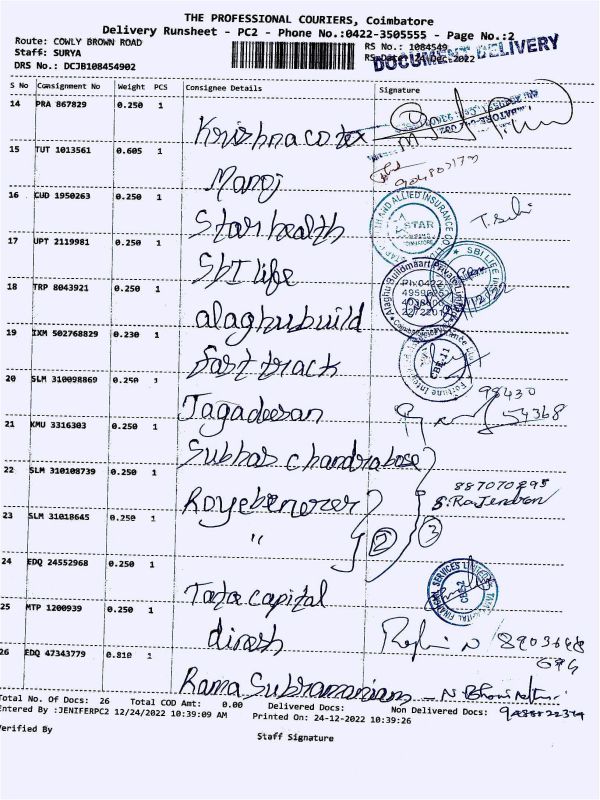 THE PROFESSIONAL COURIERS, Coimbatore
Delivery Runsheet - PC2 - Phone No.:0422-3505555 - Page No.:2
Route: COWLY BROWN ROAD
RS No.: 1084549
DOCUMENT DELIVERY
Staff: SURYA
24 Dec 2022
DRS No.: DCJB108454902
S No Consignment No Weight PCS Consignee Details Signature
14 PRA 867829 0.250 1 Krishna cotex
15 TUT 1013561 0.605 1 Manoj
16 CUD 1950263 0.250 1 Star health T. Selvi
STAR
17 UPT 2119981 0.250 1 SBI life
SBI LIFE
18 TRP 8043921 0.250 1 alaghubuild
Alaghu Buildmaart Private Limited
19 IXM 502768829 0.230 1 fast track
CBE-11
20 SLM 310098869 0.250 1 Jagadeesan 98430
54368
21 KMU 3316303 0.250 1 Subhas chandrabose
22 SLM 310108739 0.250 1 Royebenezer 887070895
S. Rajendran
23 SLM 31018645 0.250 1 " 2 3
24 EDQ 24552968 0.250 1 Tata capital
25 MTP 1200939 0.250 1 dinesh
26 EDQ 47343779 0.810 1 Rama Subramaniam
Total No. Of Docs: 26 Total COD Amt: 0.00 Delivered Docs: Non Delivered Docs:
Entered By :JENIFERPC2 12/24/2022 10:39:09 AM Printed On: 24-12-2022 10:39:26
Verified By
Staff Signature